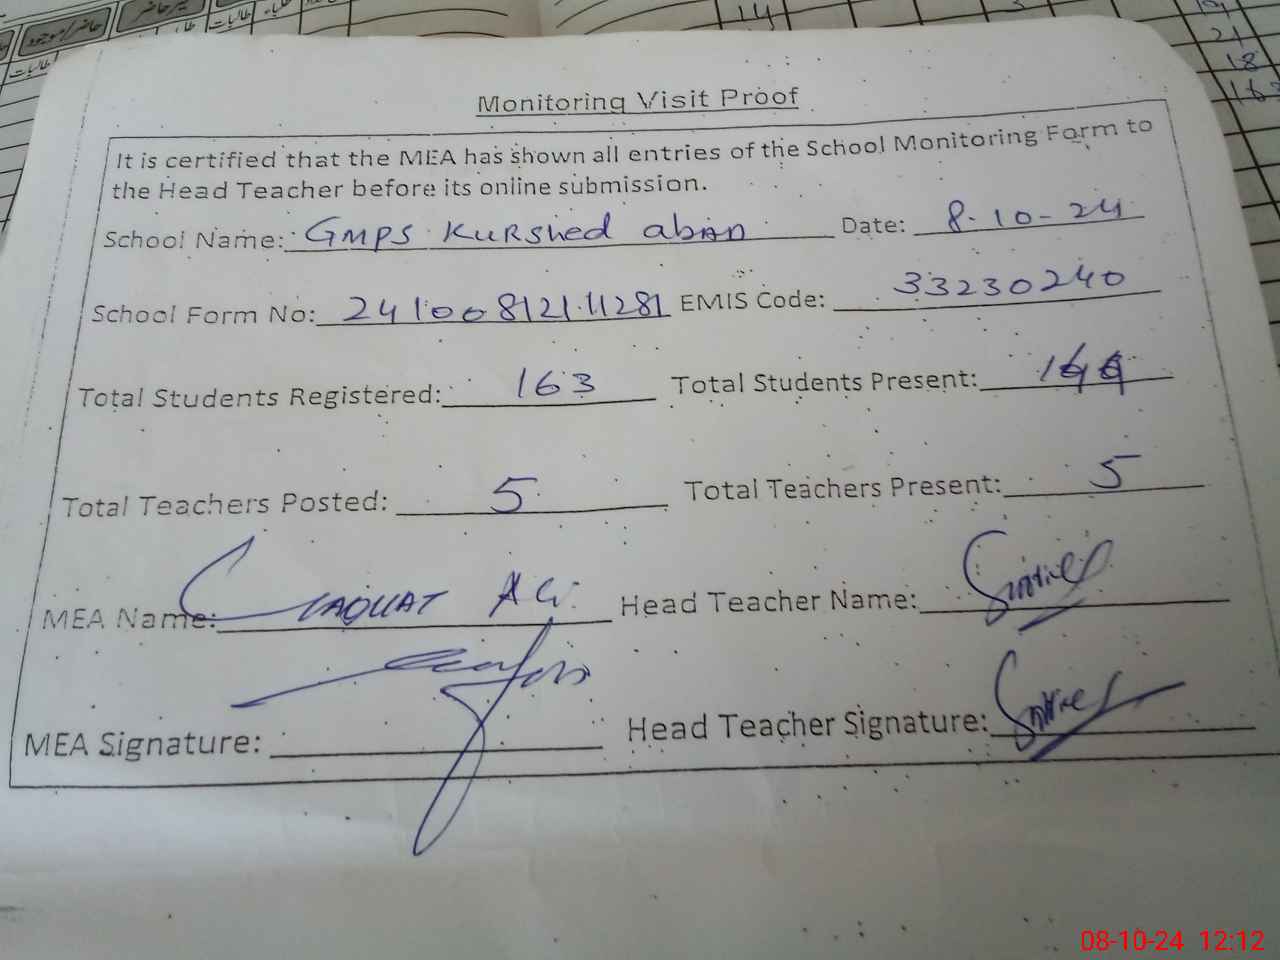 حاضر/موجود
غیر حاضر
طالبات
طالبات
14
21
18
163
Monitoring Visit Proof
It is certified that the MEA has shown all entries of the School Monitoring Form to
the Head Teacher before its online submission.
School Name: GMPS Kurshed abad Date: 8-10-24
School Form No: 241008121.11281 EMIS Code: 33230240
Total Students Registered: 163 Total Students Present:
Total Teachers Posted: 5 Total Teachers Present: 5
MEA Name: LIAQUAT Ali Head Teacher Name:
MEA Signature: Head Teacher Signature:
08-10-24 12:12